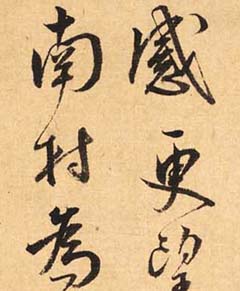 感更望
南村為